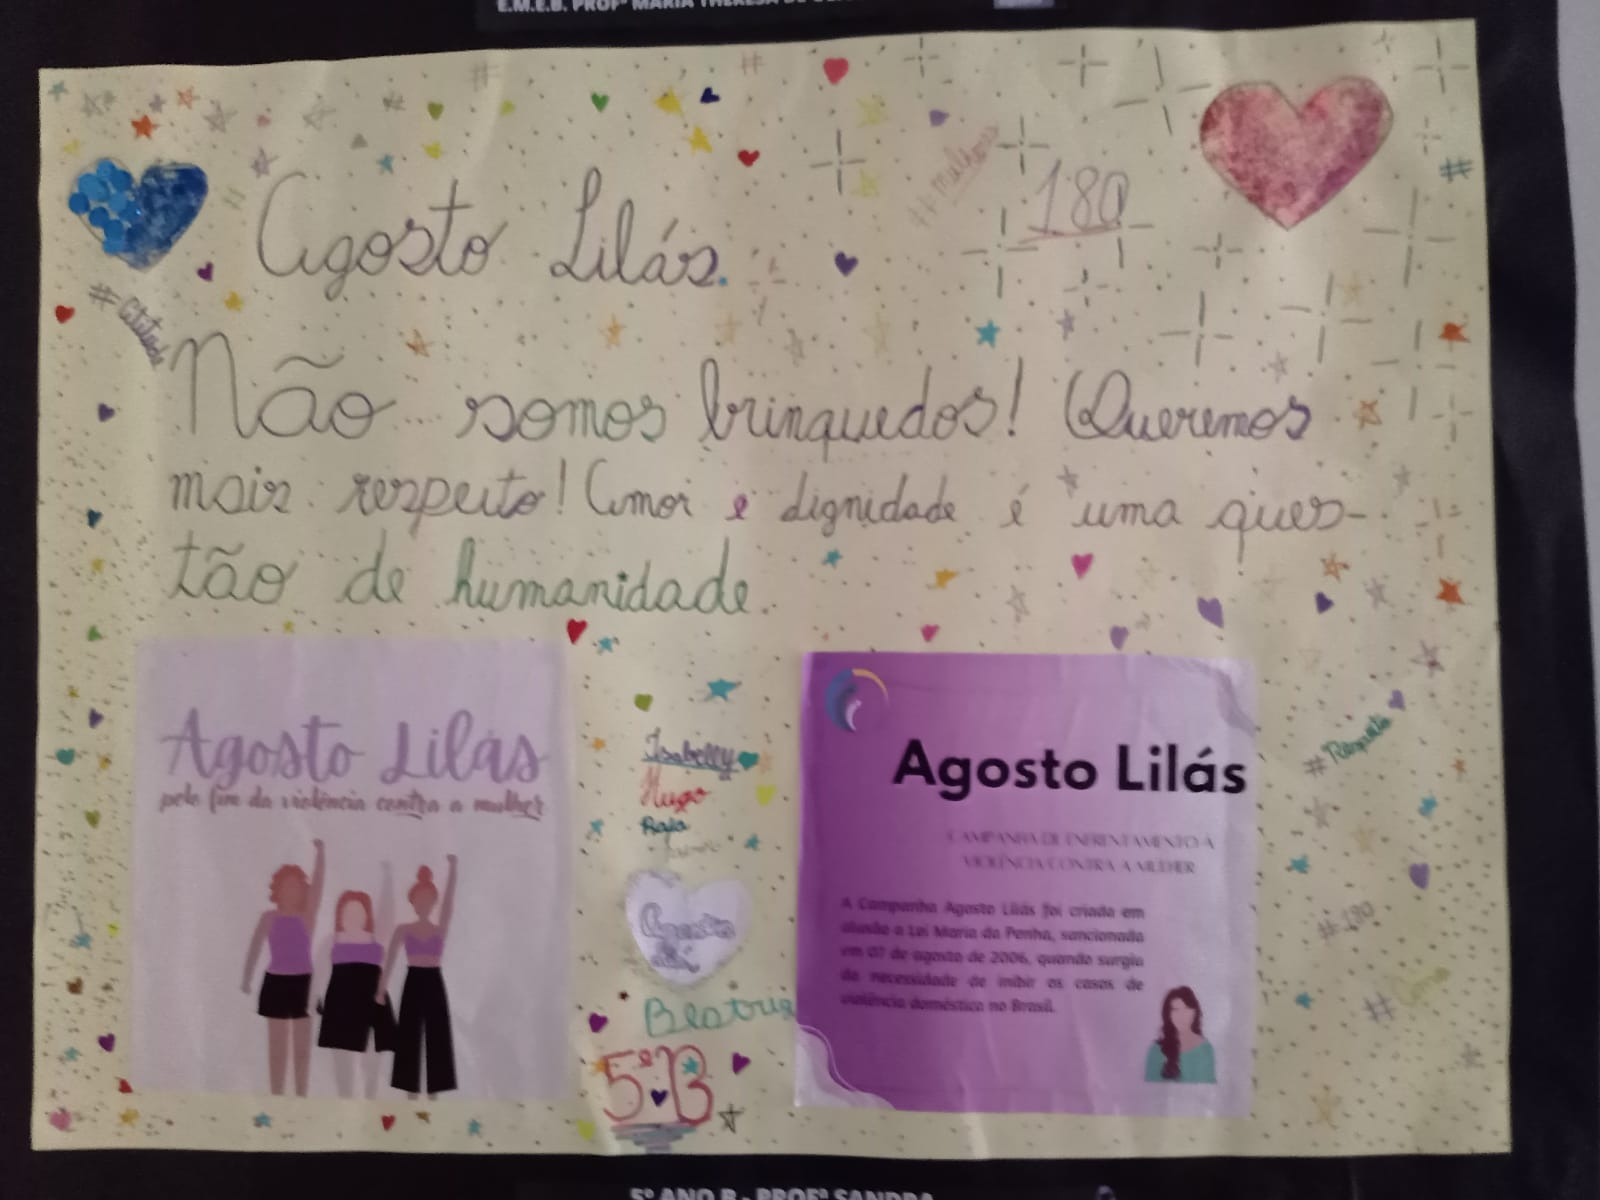 E.M.E.B. PROFª MARIA THERESA DE
Agosto Lilás.
180
#mulheres
#atitude
Não somos brinquedos! Queremos
mais respeito! Amor e dignidade é uma ques-
tão de humanidade.
Agosto Lilás
pelo fim da violência contra a mulher
Isabelly
Hugo
Beatriz
5ºB
Agosto Lilás
CAMPANHA DE ENFRENTAMENTO À
VIOLÊNCIA CONTRA A MULHER
A Campanha Agosto Lilás foi criada em
alusão a Lei Maria da Penha, sancionada
em 07 de agosto de 2006, quando surgiu
da necessidade de inibir os casos de
violência doméstica no Brasil.
#Respeito
#180
5º ANO B - PROFª SANDRA